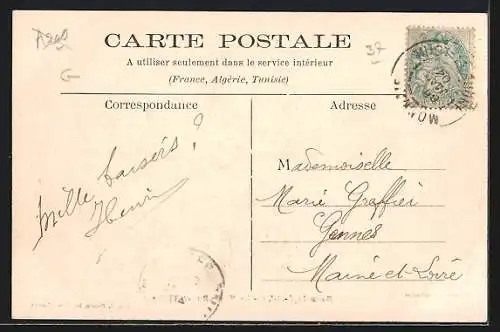 CARTE POSTALE
A utiliser seulement dans le service intérieur
(France, Algérie, Tunisie)
37
Correspondance
Adresse
Mille baisers ?
Henri
Mademoiselle
Marie Graffiei
Gennes
Maine et Loire